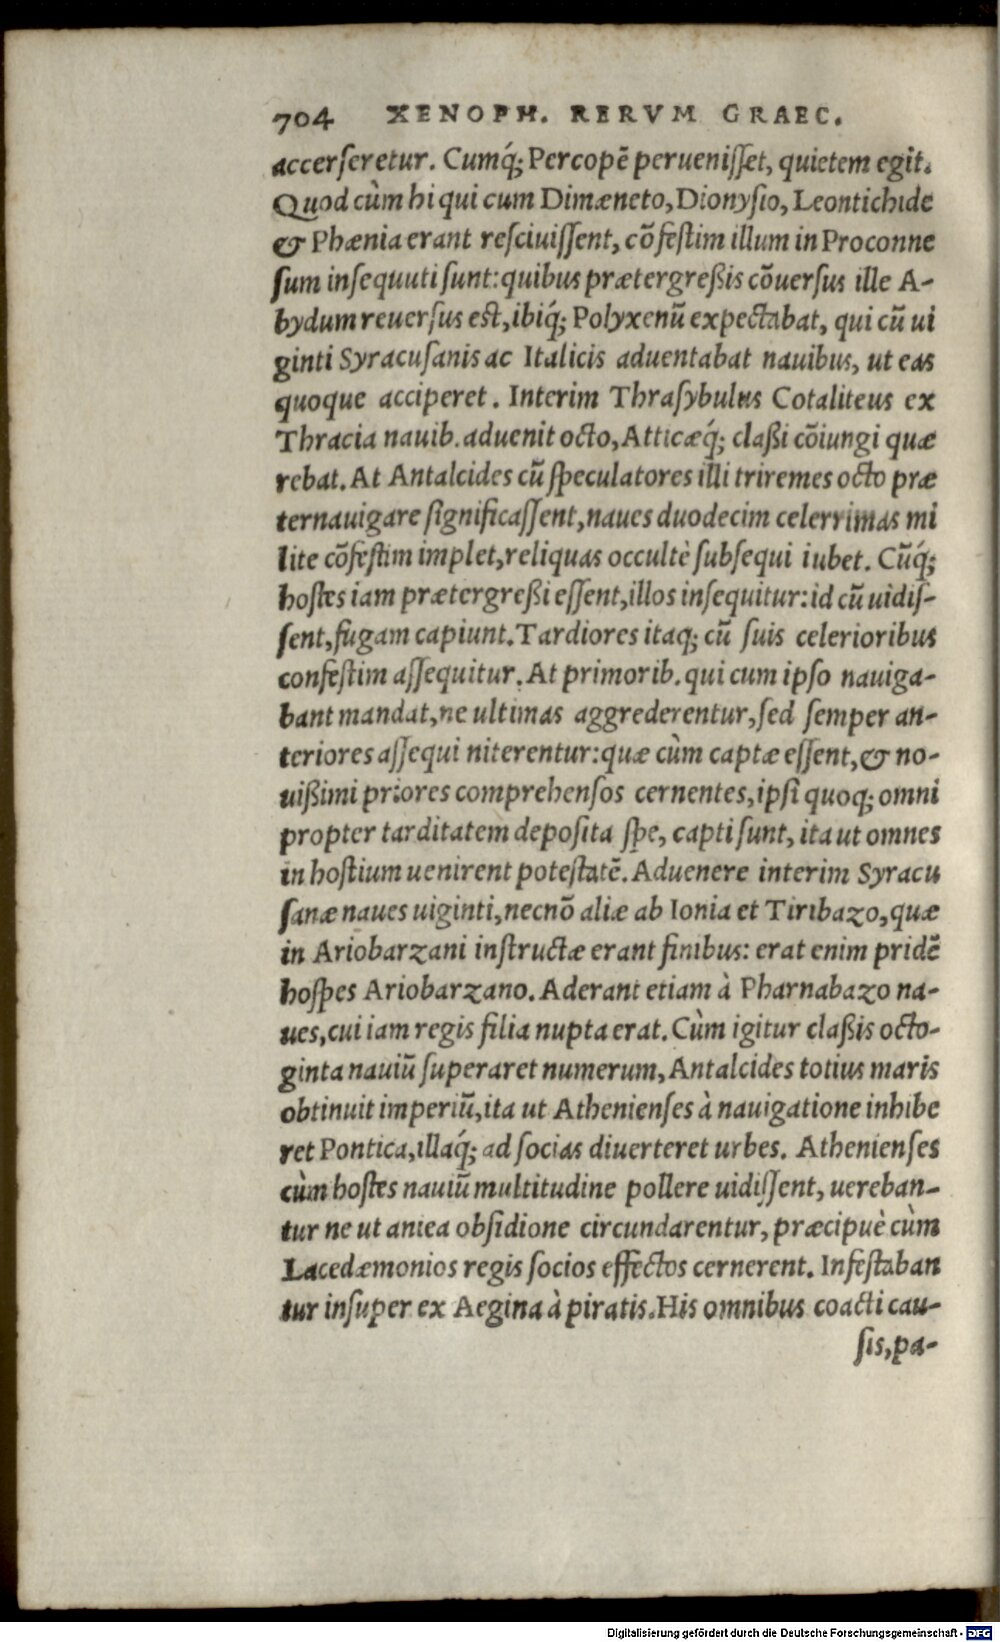 704 XENOPH. RERVM GRAEC.
accerſeretur. Cumq́; Percopē perueniſſet, quietem egit.
Quod cùm hi qui cum Dimæneto, Dionyſio, Leontichide
& Phænia erant reſciuiſſent, cōfeſtim illum in Proconne
ſum inſequuti ſunt: quibus prætergreßis cōuerſus ille A-
bydum reuerſus est, ibiq́; Polyxenū expectabat, qui cū ui
ginti Syracuſanis ac Italicis aduentabat nauibus, ut eas
quoque acciperet. Interim Thraſybulus Cotaliteus ex
Thracia nauib. aduenit octo, Atticæq́; claßi cōiungi quæ
rebat. At Antalcides cū ſpeculatores illi triremes octo præ
ternauigare ſignificaſſent, naues duodecim celerrimas mi
lite cōfeſtim implet, reliquas occultè ſubſequi iubet. Cūq́;
hoſtes iam prætergreßi eſſent, illos inſequitur: id cū uidiſ-
ſent, fugam capiunt. Tardiores itaq; cū ſuis celerioribus
confeſtim aſſequitur. At primorib. qui cum ipſo nauiga-
bant mandat, ne ultimas aggrederentur, ſed ſemper an-
teriores aſſequi niterentur: quæ cùm captæ eſſent, & no-
uißimi priores comprehenſos cernentes, ipſi quoq; omni
propter tarditatem depoſita ſpe, capti ſunt, ita ut omnes
in hoſtium uenirent poteſtatē. Aduenere interim Syracu
ſanæ naues uiginti, necnō aliæ ab Ionia et Tiribazo, quæ
in Ariobarzani inſtructæ erant finibus: erat enim pridē
hoſpes Ariobarzano. Aderant etiam à Pharnabazo na-
ues, cui iam regis filia nupta erat. Cùm igitur claßis octo-
ginta nauiū ſuperaret numerum, Antalcides totius maris
obtinuit imperiū, ita ut Athenienſes à nauigatione inhibe
ret Pontica, illaq́; ad ſocias diuerteret urbes. Athenienſes
cùm hoſtes nauiū multitudine pollere uidiſſent, uereban-
tur ne ut antea obſidione circundarentur, præcipuè cùm
Lacedæmonios regis ſocios effectos cernerent. Infeſtaban
tur inſuper ex Aegina à piratis. His omnibus coacti cau-
ſis, pa-
Digitalisierung gefördert durch die Deutsche Forschungsgemeinschaft - DFG